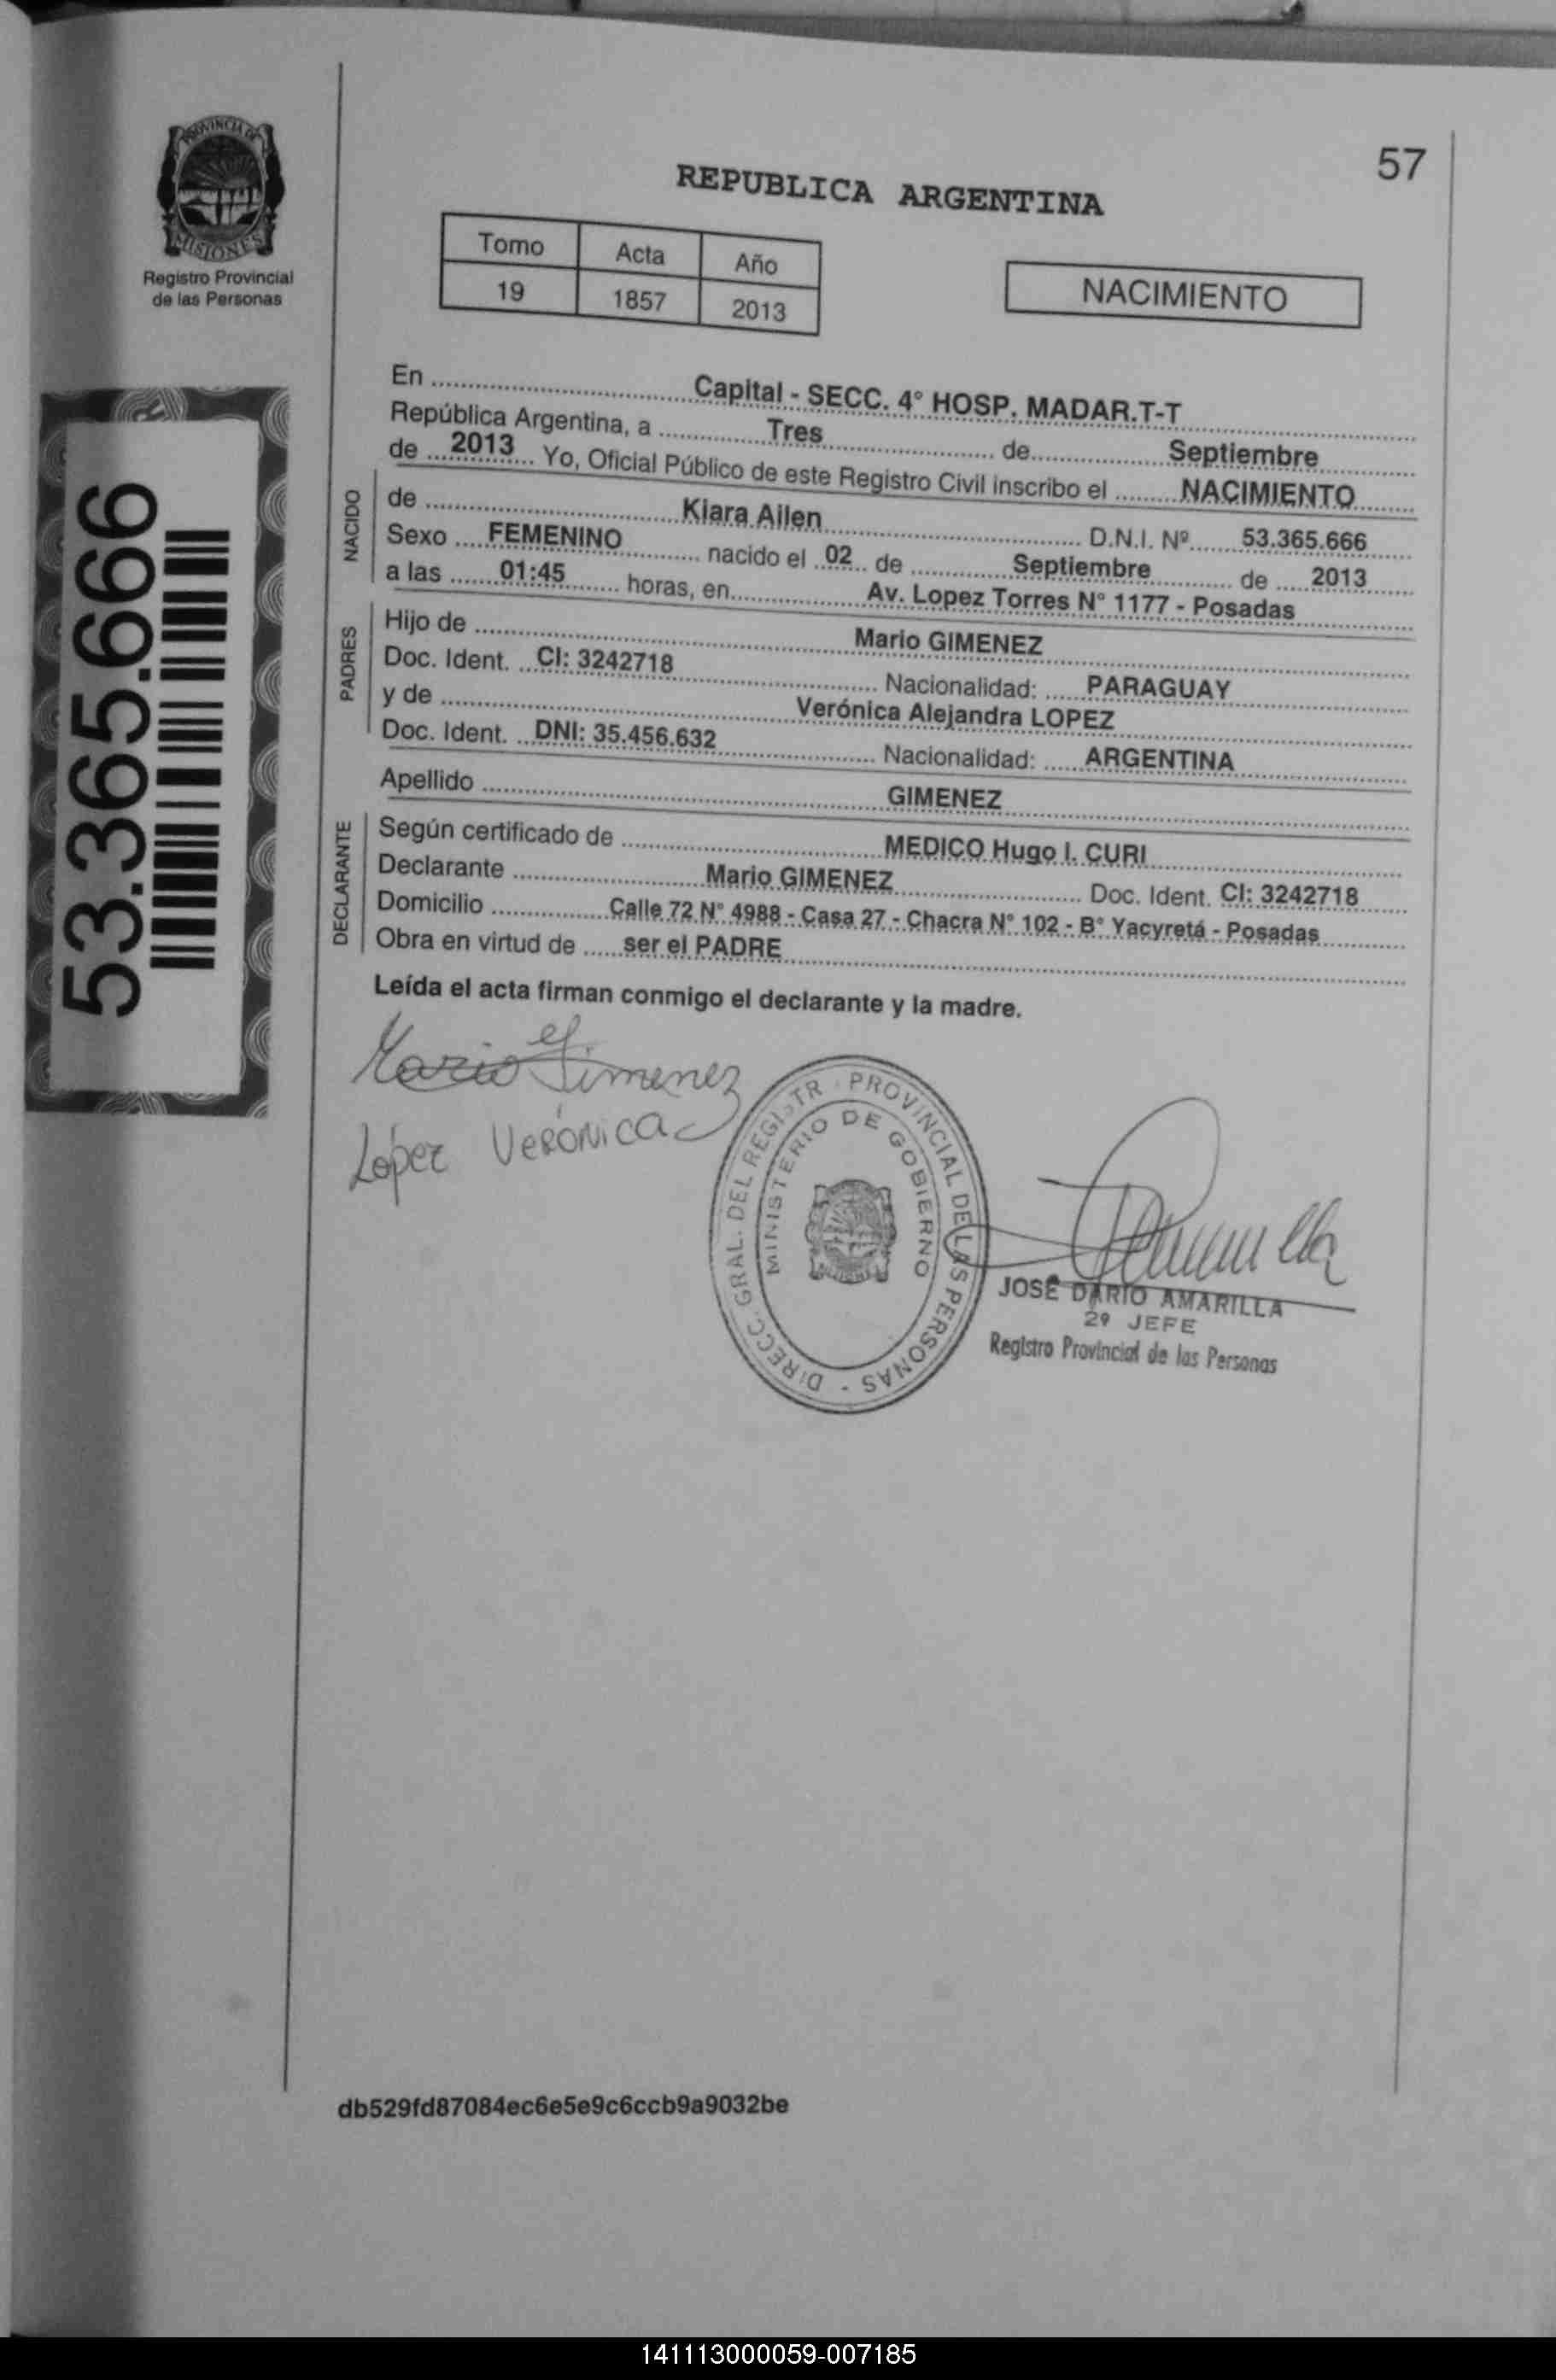 PROVINCIA DE
MISIONES
Registro Provincial
de las Personas
57
REPUBLICA ARGENTINA
Tomo Acta Año
19 1857 2013
NACIMIENTO
53.365.666
En Capital - SECC. 4° HOSP. MADAR.T-T
República Argentina, a Tres de Septiembre
de 2013 Yo, Oficial Público de este Registro Civil inscribo el NACIMIENTO
NACIDO
de Kiara Ailen D.N.I. Nº 53.365.666
Sexo FEMENINO nacido el 02 de Septiembre de 2013
a las 01:45 horas, en Av. Lopez Torres N° 1177 - Posadas
PADRES
Hijo de Mario GIMENEZ
Doc. Ident. CI: 3242718 Nacionalidad: PARAGUAY
y de Verónica Alejandra LOPEZ
Doc. Ident. DNI: 35.456.632 Nacionalidad: ARGENTINA
Apellido GIMENEZ
DECLARANTE
Según certificado de MEDICO Hugo I. CURI
Declarante Mario GIMENEZ Doc. Ident. CI: 3242718
Domicilio Calle 72 N° 4988 - Casa 27 - Chacra N° 102 - B° Yacyretá - Posadas
Obra en virtud de ser el PADRE
Leída el acta firman conmigo el declarante y la madre.
Mario Gimenez
López Verónica
DIRECC. GRAL. DEL REGISTR PROVINCIAL DE LAS PERSONAS -
MINISTERIO DE GOBIERNO
JOSÉ DARIO AMARILLA
2º JEFE
Registro Provincial de las Personas
db529fd87084ec6e5e9c6ccb9a9032be
141113000059-007185